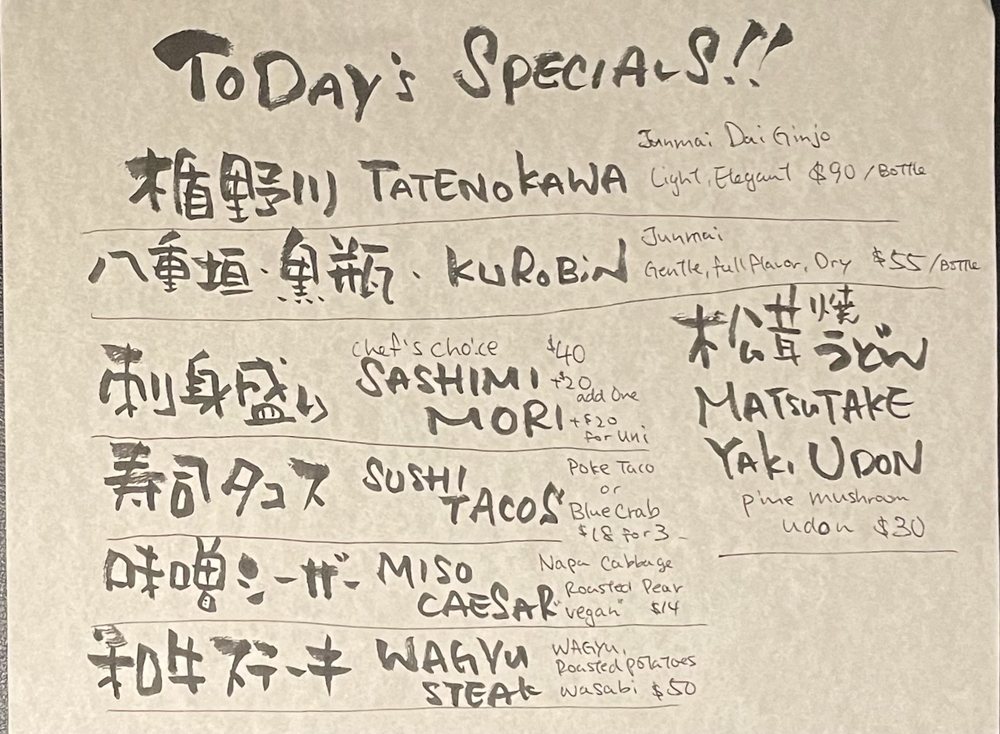 TODAY's SPECIALS!!
楯野川 TATENOKAWA Junmai Dai Ginjo
Light, Elegant $90/Bottle
八重垣・黒瓶・KUROBiN Junmai
Gentle, full flavor, Dry $55/BOTTLE
刺身盛り
chef's choice $40
SASHIMI +$20 add one
MORI +$20 for uni
寿司タコス
SUSHI TACOS
Poke Taco
or
Blue Crab
$18 for 3
味噌シーザー
MISO CAESAR
Napa Cabbage
Roasted Pear
"vegan" $14
和牛ステーキ
WAGYU STEAK
WAGYU,
Roasted potatoes
wasabi $50
松茸焼
うどん
MATSUTAKE
YAKi UDON
pine mushroom
udon $30